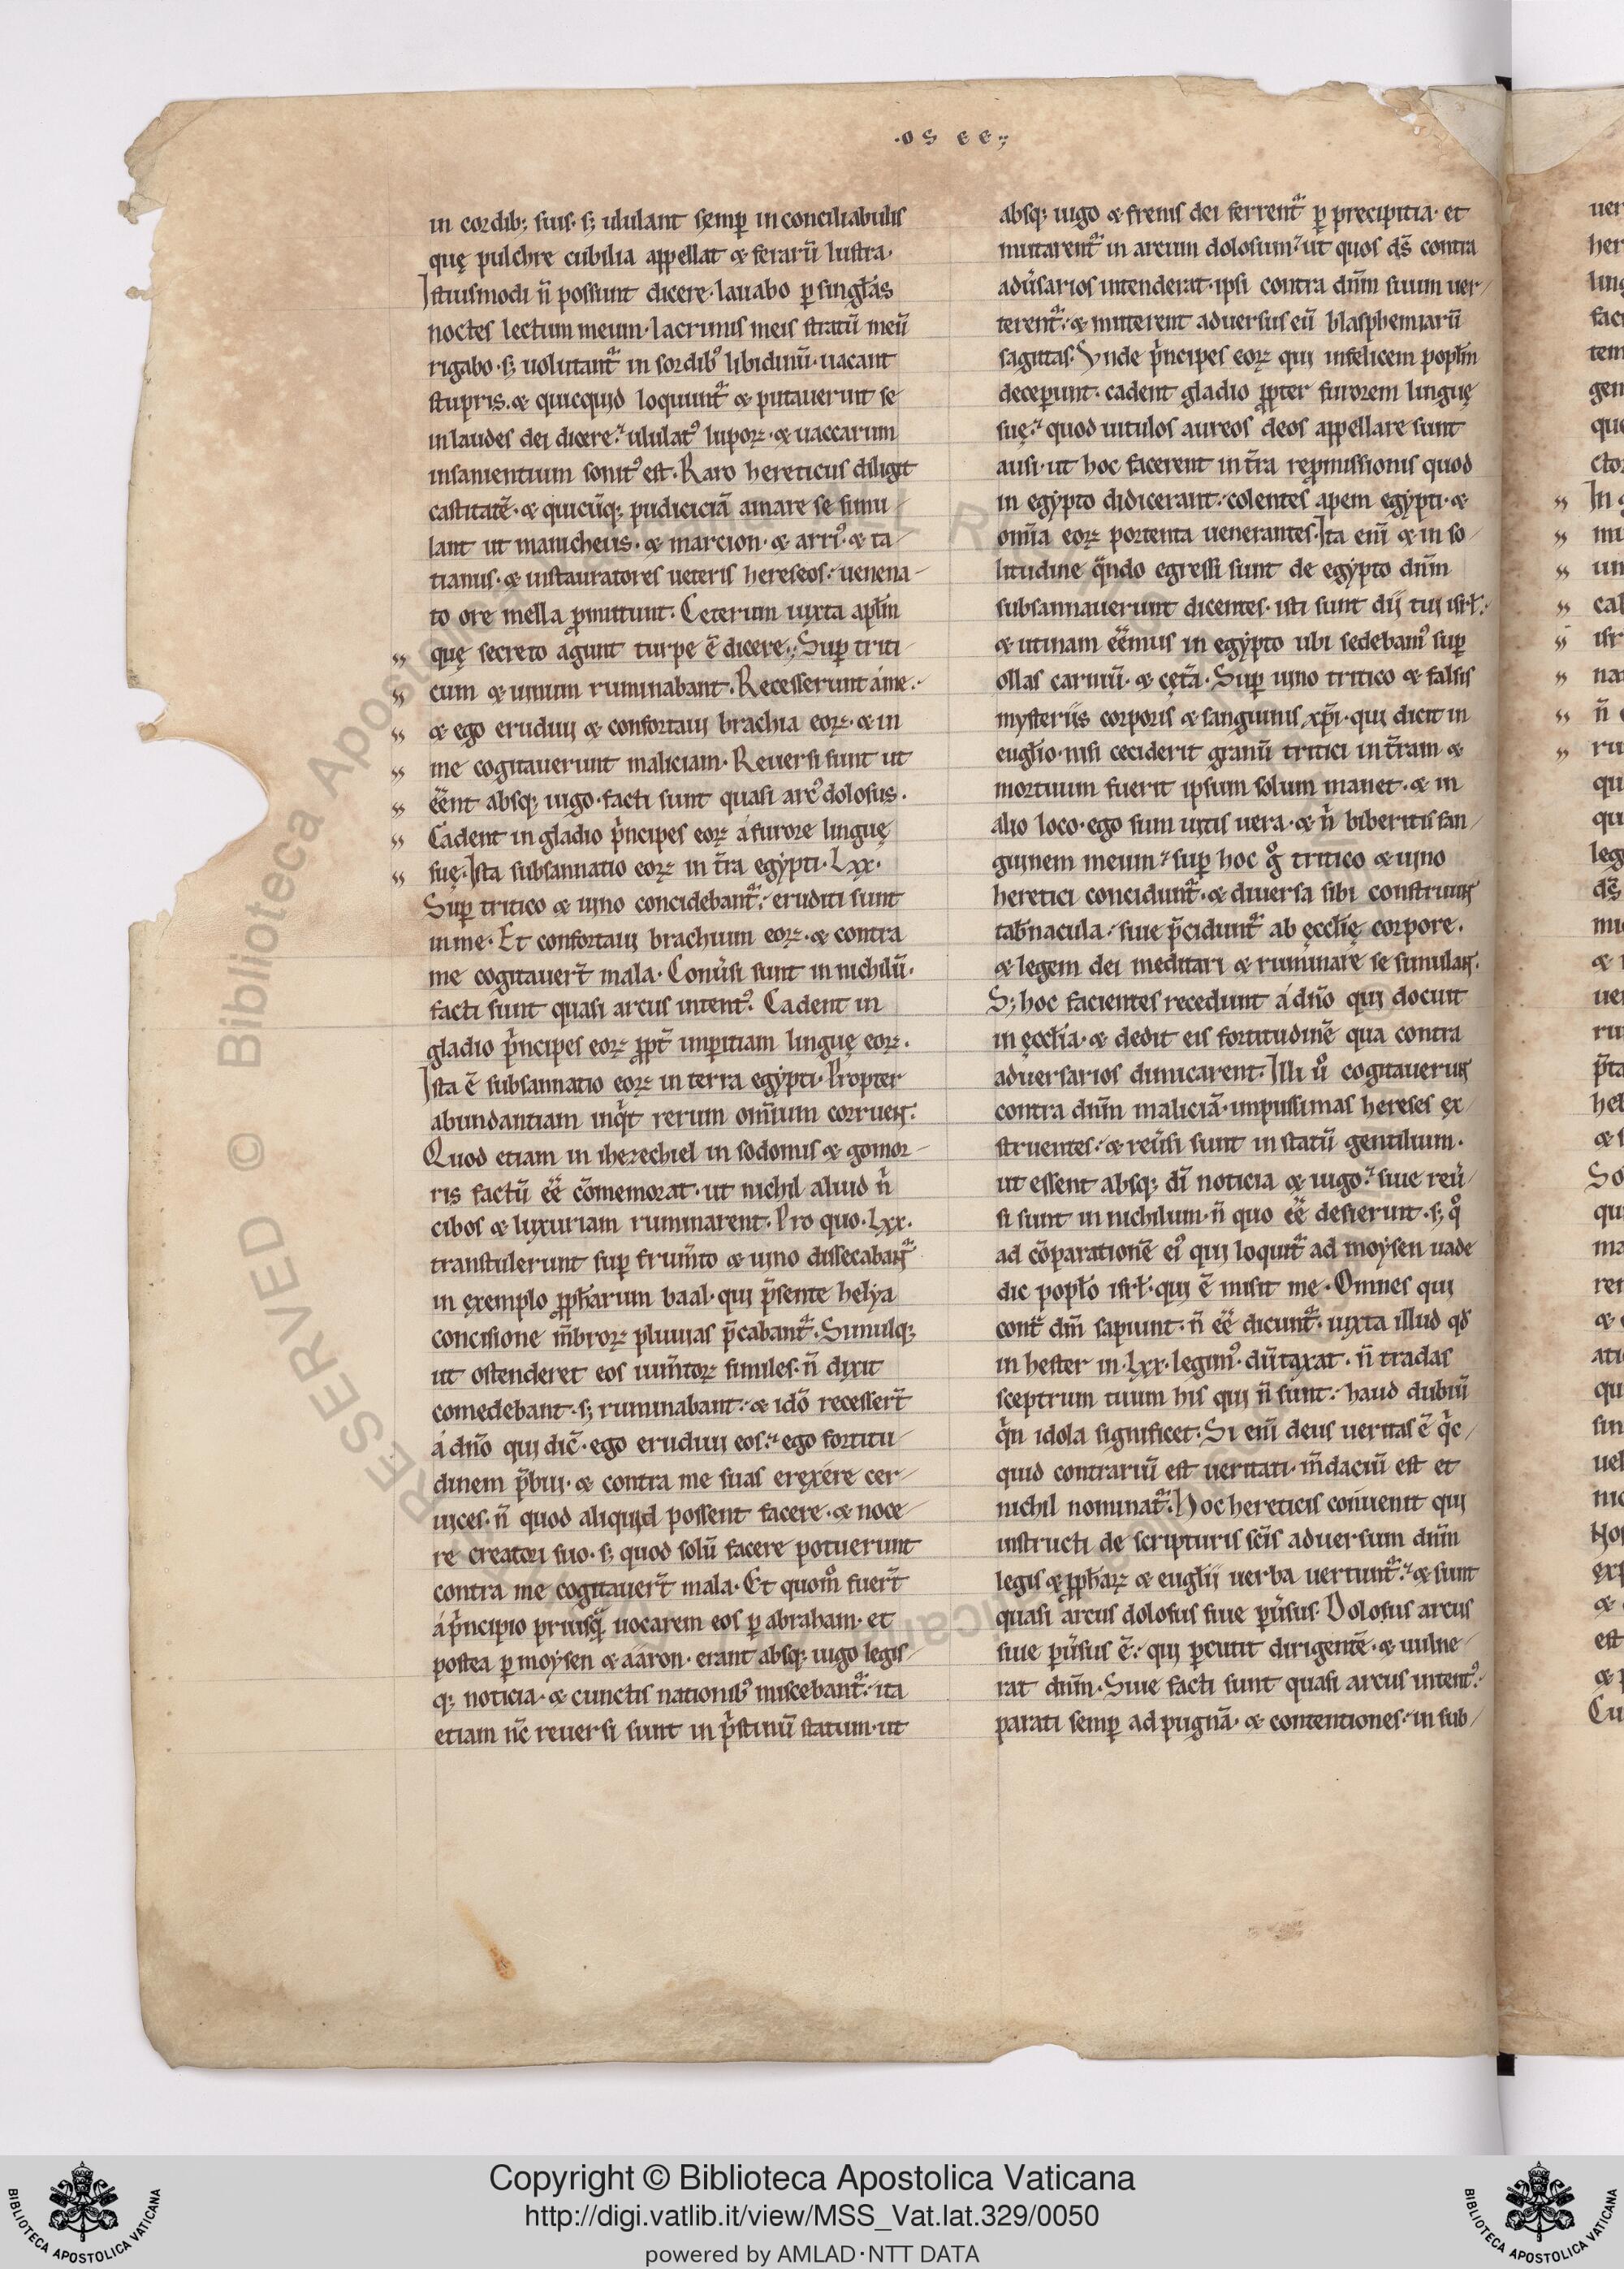 ·OSEE·;
in cordib; suis· s; ululant semp̄ in conciliabulis
quę pulchre cubilia appellat & ferarū lustra·
Istiusmodi n̄ possunt dicere· lauabo p singl̄as
noctes lectum meum· lacrimis meis stratū meū
rigabo· s; uolutant᷑ in sordib᷒ libidinū· uacant
stupris· & quicquid loquunt᷑ & putauerunt se
in laudes dei dicere· ululat᷒ lupoꝝ· & uaccarum
insanientium sonit᷒ est· Raro hereticus diligit
castitatē· & quicūq; pudiciciā amare se simu-
lant ut manicheus· & marcion· & arri᷒· & ta-
tianus· & instauratores ueteris hereseos· uenena-
to ore mella ꝓmittunt· Ceterum iuxta apl̄m
quę secreto agunt turpe ē dicere· Sup triti-
cum & uinum ruminabant· Recesserunt a me·
& ego erudiui & confortaui brachia eoꝝ· & in
me cogitauerunt maliciam· Reuersi sunt ut
eēnt absq; iugo· facti sunt quasi arc᷒ dolosus·
Cadent in gladio p̄ncipes eoꝝ a furore linguę
suę· Ista subsannatio eoꝝ in t̄ra egypti· Lxx·
Sup tritico & uino concidebant᷑· eruditi sunt
in me· Et confortaui brachium eoꝝ· & contra
me cogitauer̄t mala· Conūsi sunt in nichilū·
facti sunt quasi arcus intent᷒· Cadent in
gladio p̄ncipes eoꝝ ꝓpt̄ imperitiam linguę eoꝝ·
Ista ē subsannatio eoꝝ in terra egypti· Propter
abundantiam inq̇t rerum om̄ium corruen̄t·
Quod etiam in ihezechiel in sodomis & gomor-
ris factū eē cōmemorat· ut nichil aliud n̄
cibos & luxuriam ruminarent· Pro quo· Lxx·
transtulerunt sup frum̄to & uino dissecaban̄t᷑
in exemplo ꝓph̄arum baal· qui p̄sente helya
concisione m̄broꝝ pluuias p̄cabant᷑· Simulq;
ut ostenderet eos ium̄toꝝ similes· n̄ dixit
comedebant· s; ruminabant· & idō recesser̄t
a dn̄o qui dic̄· ego erudiui eos· ego fortitu-
dinem p̄bui· & contra me suas erexere cer-
uices· n̄ quod aliquid possent facere· & noce-
re creatori suo· s; quod solū facere potuerunt
contra me cogitauer̄t mala· Et quom̊ fuer̄t
a p̄ncipio priusq̄ uocarem eos p abraham· et
postea p moysen & aaron· erant absq; iugo legis-
q; noticia· & cunctis nationib᷒ miscebant᷑· ita
etiam nc̄ reuersi sunt in p̄stinū statum· ut
absq; iugo & frenis dei ferrent᷑ p precipitia· et
mutarent᷑ in arcum dolosum· ut quos dš contra
adūsarios intenderat· ipsi contra dn̄m suum uer-
terent᷑· & mitterent aduersus eū blasphemiarū
sagittas· Vnde p̄ncipes eoꝝ qui infelicem popl̄m
decepunt· cadent gladio ꝓpter furorem linguę
suę· quod uitulos aureos deos appellare sunt
ausi· ut hoc facerent in t̄ra repromissionis quod
in egypto didicerant· colentes apem egypti· &
om̄ia eoꝝ portenta uenerantes· Ita enī & in so-
litudine q̄ndo egressi sunt de egypto dn̄m
subsannauerunt dicentes· isti sunt dij tui isrł·
& utinam eēmus in egypto ubi sedebam᷒ sup
ollas carniū· & cęt̄a· Sup uino tritico & falsis
mysteriis corporis & sanguinis xp̄i· qui dicit in
euglio· nisi ceciderit granū tritici in t̄ram &
mortuum fuerit ipsum solum manet· & in
alio loco· ego sum uitis uera· & n̄ biberitis san-
guinem meum· sup hoc g̊ tritico & uino
heretici concidunt᷑· & diuersa sibi construun̄t
tab̄nacula· siue p̄cidunt᷑ ab ęccl̄ię corpore·
& legem dei meditari & ruminare se simulan̄t·
S; hoc facientes recedunt a dn̄o qui docuit
in ęccl̄ia· & dedit eis fortitudinē qua contra
aduersarios dimicarent· Illi ů cogitauerun̄t
contra dn̄m maliciā· impiissimas hereses ex-
struentes· & reūsi sunt in statū gentilium·
ut essent absq; dī noticia & iugo· siue reū-
si sunt in nichilum· n̄ quo eē desierint· s; q̊
ad cōparationē ei᷒ qui loquit᷑ ad moysen uade
dic popl̄o isrł· qui ē misit me· Omnes qui
cont̄ dm̄ sapiunt· n̄ eē dicunt᷑· iuxta illud qđ
in hester in· Lxx· legim᷒· dūtaxat· n̄ tradas
sceptrum tuum his qui n̄ sunt· haud dubiū
q̇n idola significet· Si enī deus ueritas ē q̇c-
quid contrariū est ueritati· m̄daciū est et
nichil nominat᷑· Hoc hereticis conuenit qui
instructi de scripturis sc̄is aduersum dn̄m
legis & ꝓph̄aꝝ & euglij uerba uertunt᷑· & sunt
quasi arcus dolosus siue pūsus· Dolosus arcus
siue pūsus ē· qui pcutit dirigentē· & uulne-
rat dn̄m· Siue facti sunt quasi arcus intent᷒·
parati semp ad pugnā· & contentiones· in sub-
Copyright © Biblioteca Apostolica Vaticana
http://digi.vatlib.it/view/MSS_Vat.lat.329/0050
powered by AMLAD·NTT DATA
BIBLIOTECA APOSTOLICA VATICANA
BIBLIOTECA APOSTOLICA VATICANA